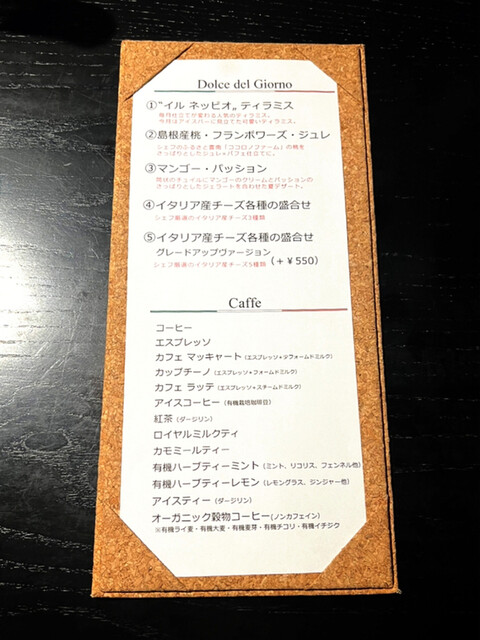 Dolce del Giorno
①“イル ネッビオ„ ティラミス
毎月仕立てが変わる人気のティラミス。
今月はアイスバーに見立てた可愛いティラミス。
②島根産桃・フランボワーズ・ジュレ
シェフのふるさと雲南「ココロノファーム」の桃を
さっぱりとしたジュレ・パフェ仕立てに。
③マンゴー・パッション
筒状のチュイルにマンゴーのクリームとパッションの
さっぱりとしたジェラートを合わせた夏デザート。
④イタリア産チーズ各種の盛合せ
シェフ厳選のイタリア産チーズ3種類
⑤イタリア産チーズ各種の盛合せ
グレードアップヴァージョン
シェフ厳選のイタリア産チーズ5種類 (+¥550)
Caffe
コーヒー
エスプレッソ
カフェ マッキャート(エスプレッソ+少フォームドミルク)
カップチーノ(エスプレッソ+フォームドミルク)
カフェ ラッテ(エスプレッソ+スチームドミルク)
アイスコーヒー(有機栽培珈琲豆)
紅茶(ダージリン)
ロイヤルミルクティ
カモミールティー
有機ハーブティーミント(ミント、リコリス、フェンネル他)
有機ハーブティーレモン(レモングラス、ジンジャー他)
アイスティー(ダージリン)
オーガニック穀物コーヒー(ノンカフェイン)
※有機ライ麦・有機大麦・有機麦芽・有機チコリ・有機イチジク